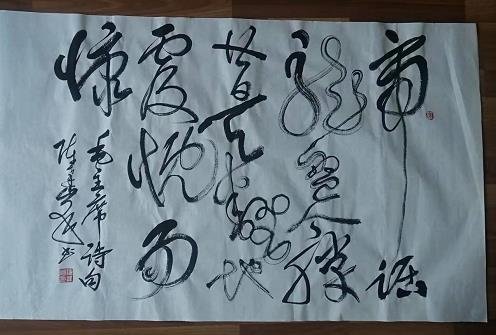 虎踞
龍盤今勝
昔天翻地
覆慨而
慷
毛主席诗句
陈书